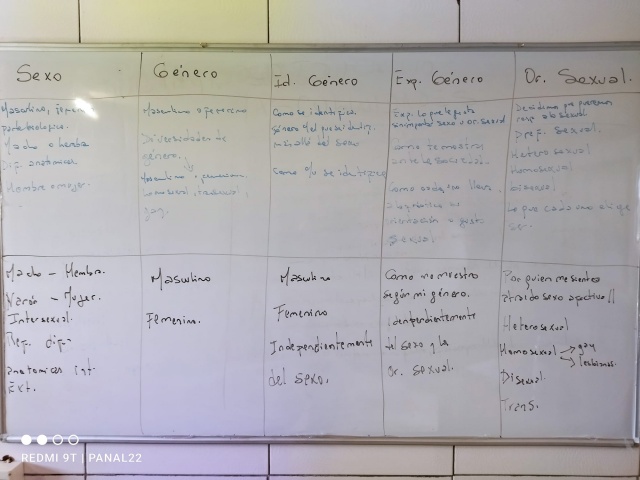 Sexo
Género
Id. Género
Exp. Género
Or. Sexual.
Masculino, femen
parte biologica.
Macho o hembra
Dif. anatomica
Hombre o mujer.
Masculino o femenino
Diversidades de
género.
Como se identifica
género
del sexo
Como se identifica
Exp. Lo que le gusta
sin importar sexo u or. sexual
como se muestra
ante la sociedad.
Como se lleva
orientación
sexual
Decidimos por queremos
pref. sexual.
Heterosexual
Homosexual
bisexual
Lo que cada uno elige
ser.
Macho - Hembra.
Varón - Mujer.
Intersexual.
anatomicas int.
Ext.
Masculino
Femenino.
Masculino
Femenino
Independientemente
del sexo.
Como me muestro
según mi género.
idenpendientemente
del sexo y la
Or. sexual.
Por quien me siento
atraido sexo afectivo //
Heterosexual
Homosexual → gay
→ lesbianas
Bisexual
Trans.
REDMI 9T | PANAL22